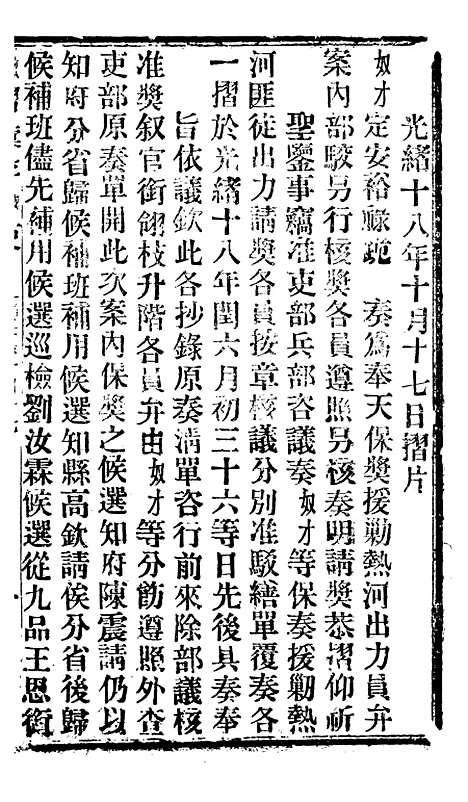 光緒十八年十月十七日摺片
奴才定安裕祿跪　奏爲奉天保獎援勦熱河出力員弁
案內部駮另行核獎各員遵照另核奏明請獎恭摺仰祈
聖鑒事竊准吏部兵部咨議奏奴才等保奏援勦熱
河匪徒出力請獎各員按章核議分別准駮繕單覆奏各
一摺於光緒十八年閏六月初三十六等日先後具奏奉
旨依議欽此各抄錄原奏清單咨行前來除部議核
准獎叙官銜翎枝升階各員弁由奴才等分飭遵照外查
吏部原奏單開此次案內保獎之候選知府陳震請仍以
知府分省歸候補班補用候選知縣高欽請俟分省後歸
候補班儘先補用候選巡檢劉汝霖候選從九品王恩銜